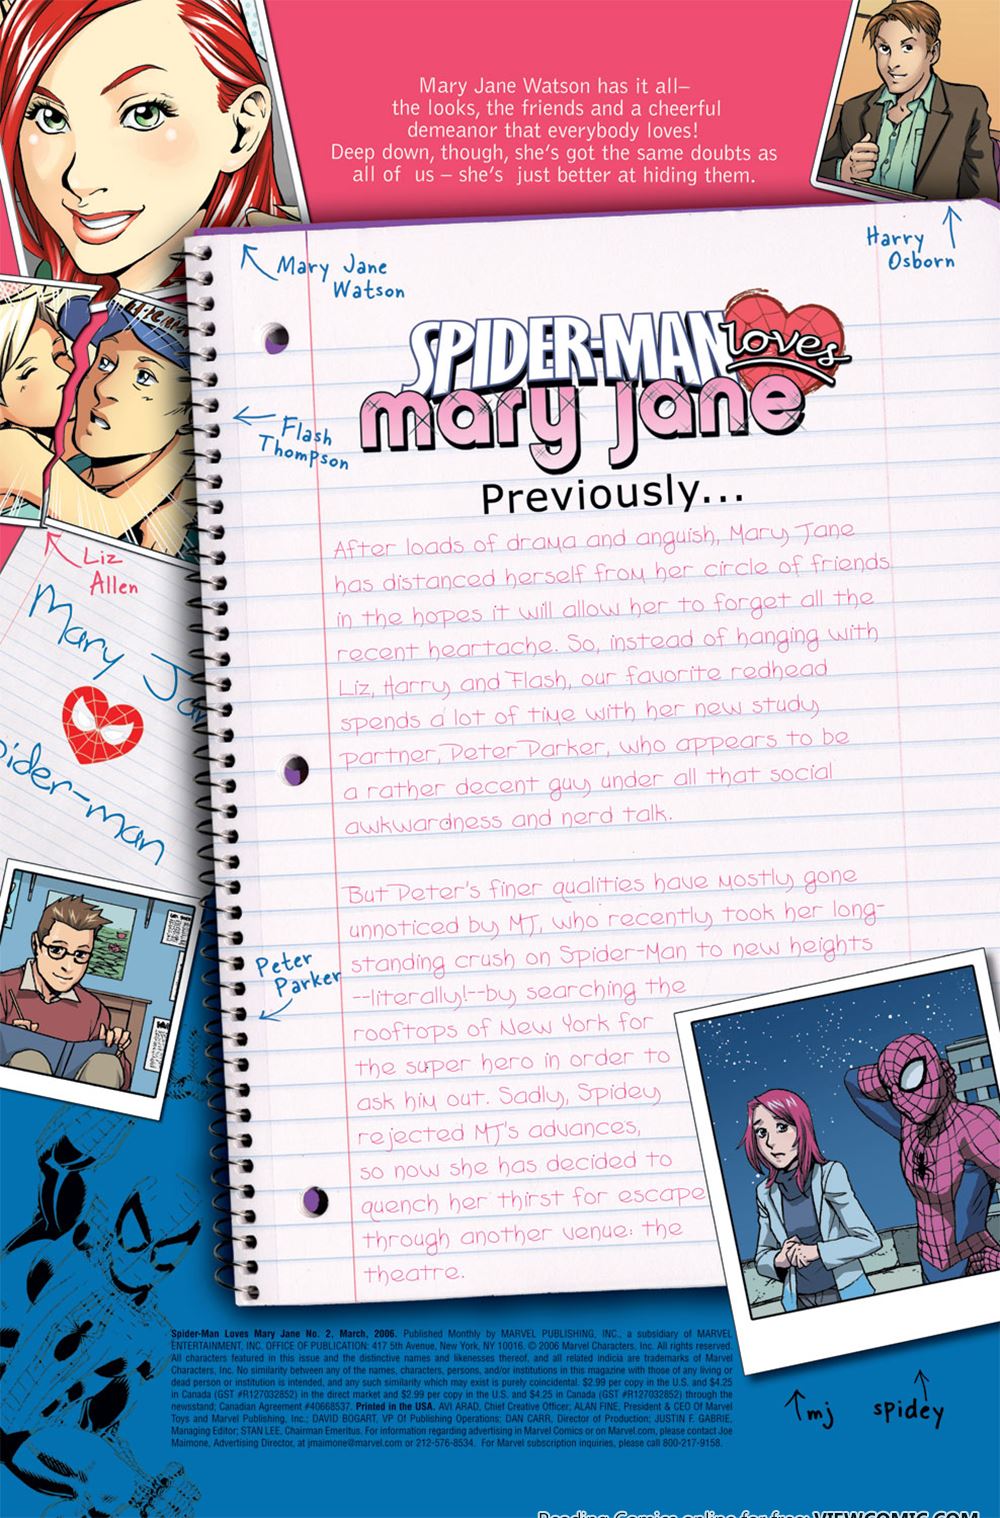 Mary Jane Watson has it all–
the looks, the friends and a cheerful
demeanor that everybody loves!
Deep down, though, she's got the same doubts as
all of us – she's just better at hiding them.
Mary Jane
Watson
Harry
Osborn
SPIDER-MAN loves
mary jane
Flash
Thompson
Previously...
Liz
Allen
After loads of drama and anguish, Mary Jane
has distanced herself from her circle of friends
in the hopes it will allow her to forget all the
recent heartache. So, instead of hanging with
Liz, Harry and Flash, our favorite redhead
spends a lot of time with her new study
partner, Peter Parker, who appears to be
a rather decent guy under all that social
awkwardness and nerd talk.
Mary Jan
pider-man
But Peter's finer qualities have mostly gone
unnoticed by MJ, who recently took her long-
standing crush on Spider-Man to new heights
--literally!--by searching the
rooftops of New York for
the super hero in order to
ask him out. Sadly, Spidey
rejected MJ's advances,
so now she has decided to
quench her thirst for escape
through another venue: the
theatre.
Peter
Parker
mj spidey
Spider-Man Loves Mary Jane No. 2, March, 2006. Published Monthly by MARVEL PUBLISHING, INC., a subsidiary of MARVEL
ENTERTAINMENT, INC. OFFICE OF PUBLICATION: 417 5th Avenue, New York, NY 10016. © 2006 Marvel Characters, Inc. All rights reserved.
All characters featured in this issue and the distinctive names and likenesses thereof, and all related indicia are trademarks of Marvel
Characters, Inc. No similarity between any of the names, characters, persons, and/or institutions in this magazine with those of any living or
dead person or institution is intended, and any such similarity which may exist is purely coincidental. $2.99 per copy in the U.S. and $4.25
in Canada (GST #R127032852) in the direct market and $2.99 per copy in the U.S. and $4.25 in Canada (GST #R127032852) through the
newsstand; Canadian Agreement #40668537. Printed in the USA. AVI ARAD, Chief Creative Officer; ALAN FINE, President & CEO Of Marvel
Toys and Marvel Publishing, Inc.; DAVID BOGART, VP Of Publishing Operations; DAN CARR, Director of Production; JUSTIN F. GABRIE,
Managing Editor; STAN LEE, Chairman Emeritus. For information regarding advertising in Marvel Comics or on Marvel.com, please contact Joe
Maimone, Advertising Director, at jmaimone@marvel.com or 212-576-8534. For Marvel subscription inquiries, please call 800-217-9158.
Reading Comics online for free: VIEWCOMIC.COM